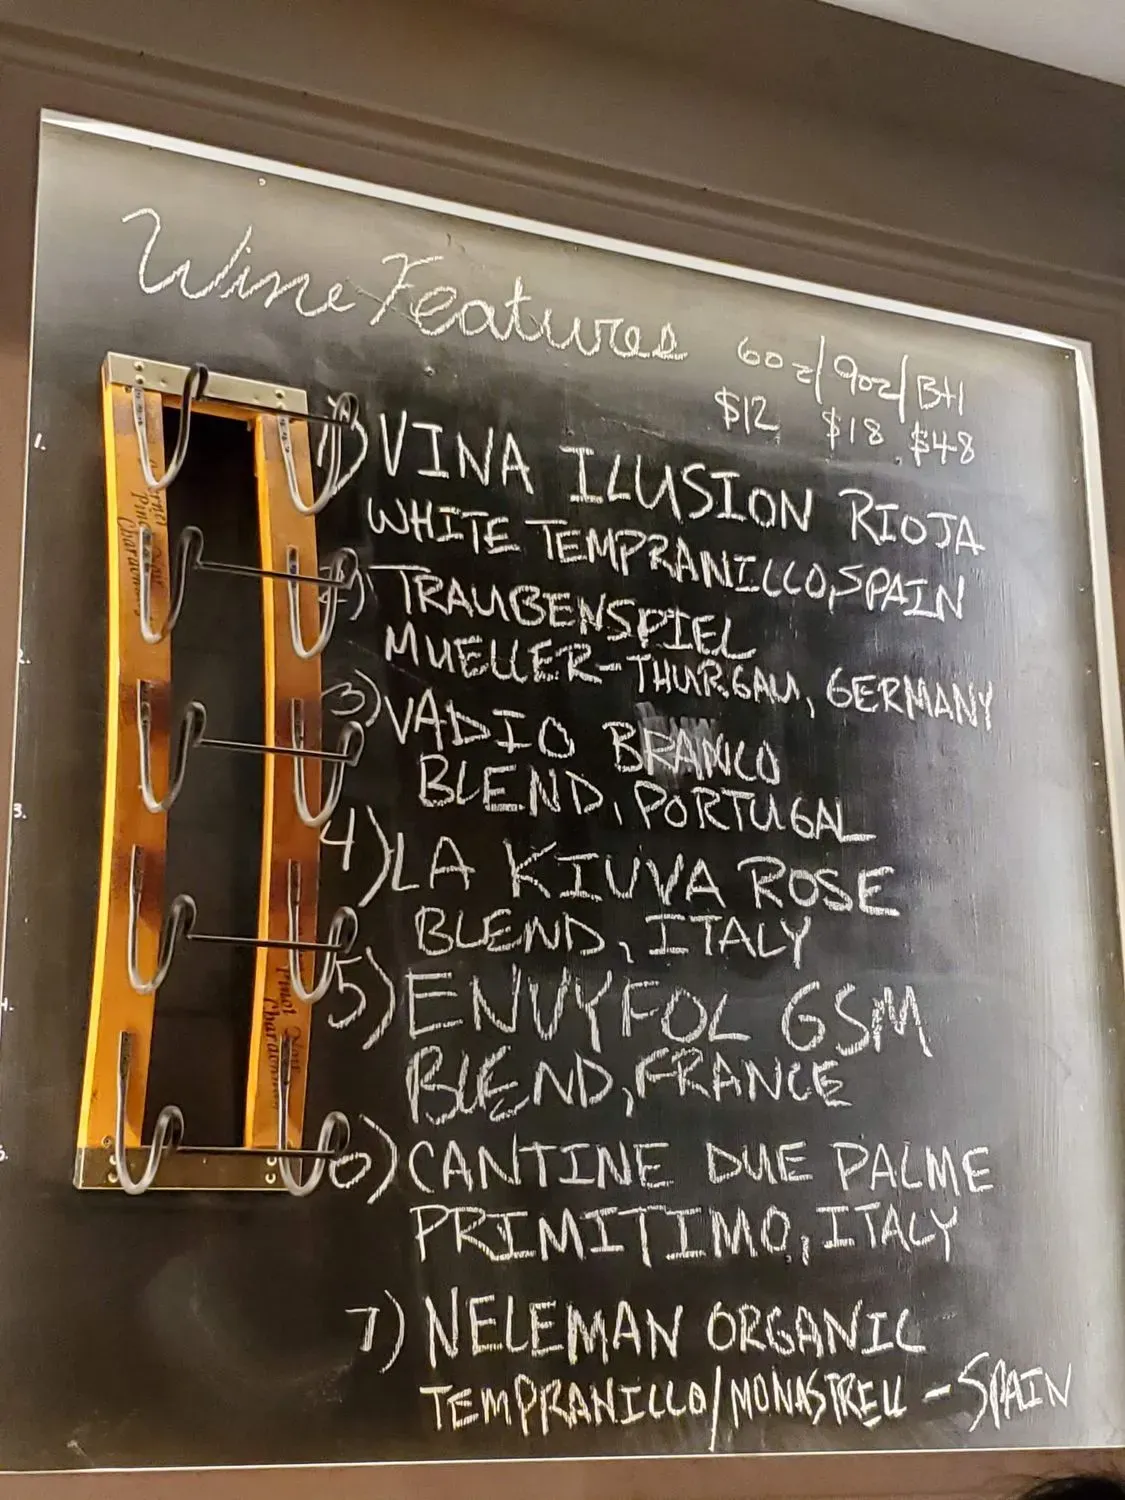 Wine Features
6oz/9oz/Btl
$12 $18 $48
1) VINA ILUSION RIOJA
WHITE TEMPRANILLO, SPAIN
2) TRAUBENSPIEL
MUELLER-THURGAU, GERMANY
3) VADIO BRANCO
BLEND, PORTUGAL
4) LA KIUVA ROSE
BLEND, ITALY
5) ENVYFOL GSM
BLEND, FRANCE
6) CANTINE DUE PALME
PRIMITIMO, ITALY
7) NELEMAN ORGANIC
TEMPRANILLO/MONASTRELL - SPAIN
1.
2.
3.
4.
Pinot Noir
Chardonnay